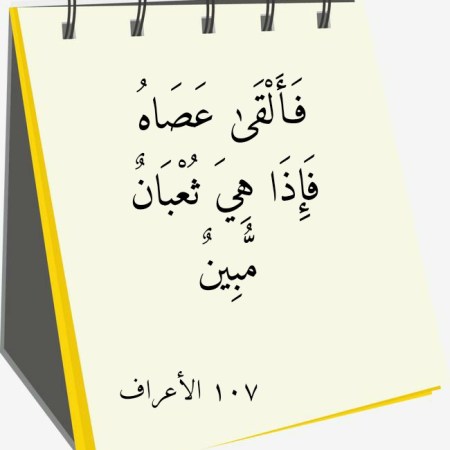 فَأَلْقَىٰ عَصَاهُ
فَإِذَا هِيَ ثُعْبَانٌ
مُّبِينٌ
١٠٧ الأعراف